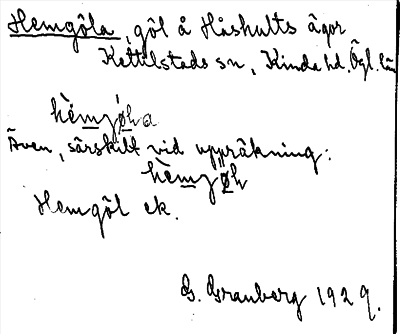 Hemgöla, göl å Håshults ägor
Kettilstads sn, Kinda hd. Ögl. län
Även, särskilt vid uppräkning:
Hemgöl ek.
G. Granberg 1929.